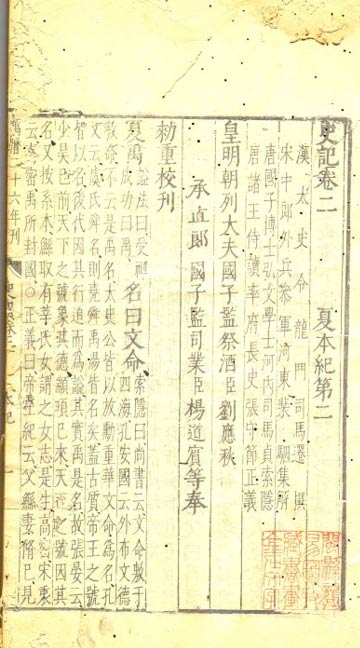 史記卷二　夏本紀第二
漢太史令龍門司馬遷撰
宋中郎外兵參軍河東裴駰集解
唐國子博士弘文學士河內司馬貞索隱
唐諸王侍讀率府長史張守節正義
皇明朝列大夫國子監祭酒臣劉應秋
承直郎國子監司業臣楊道賓等奉
勑重校刊
夏禹 謚法曰受禪成功曰禹 名曰文命 索隱曰尚書云文命敷于四海孔安國云外布文德
教命不云是禹名太史公皆以放勳重華文命為名孔
文云虞氏舜名則堯舜禹湯皆名矣蓋古質帝王之號
皆以名後代因其行追而為謚其實禹是名故張晏云
少昊已前天下之號象其德顓頊已來天下之號因其
名又按系本鯀取有莘氏女謂之女志是生高密宋衷
云高密禹所封國○正義曰帝王紀云父鯀妻脩己見
二十六年刊
史記卷二
本紀
一